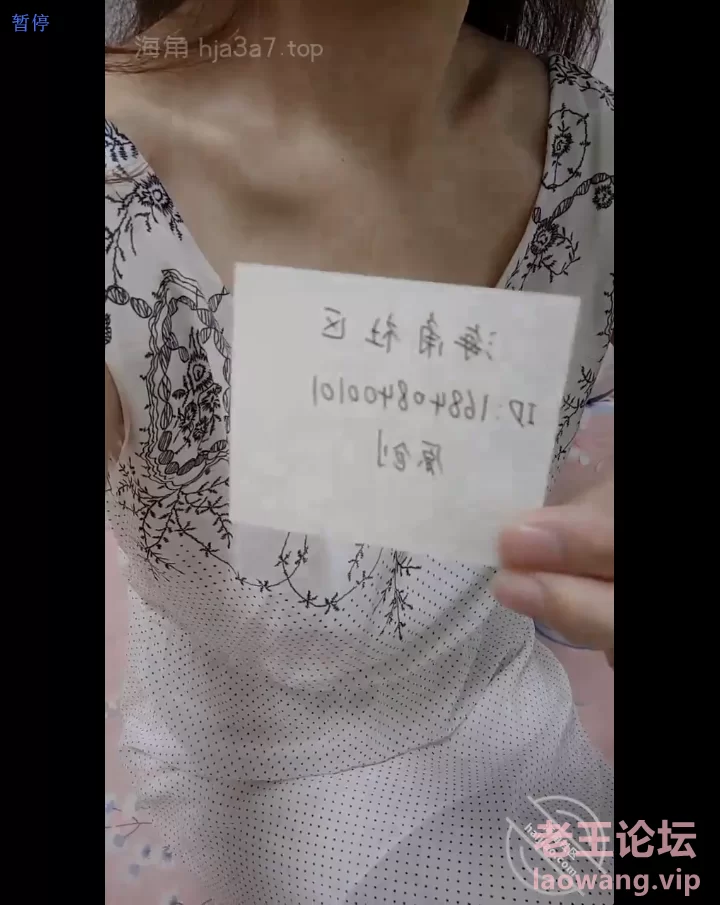 暂停
海角 hja3a7.top
海角社区
ID:168408400101
原创
老王论坛
laowang.vip